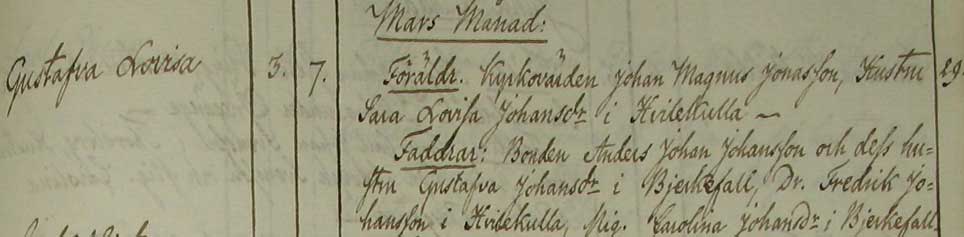 Mars Månad:
Gustafva Lovisa 3. 7. Föräldr. Kyrkovärden Johan Magnus Jonasson, Hustru 29.
Sara Lovisa Johansdr i Hvilekulla —
Faddrar: Bonden Anders Johan Johansson och dess hu-
stru Gustafva Johansdr i Bjerkefall, Dr. Fredrik Jo-
hansson i Hvilekulla, Pig. Carolina Johansdr i Bjerkefall